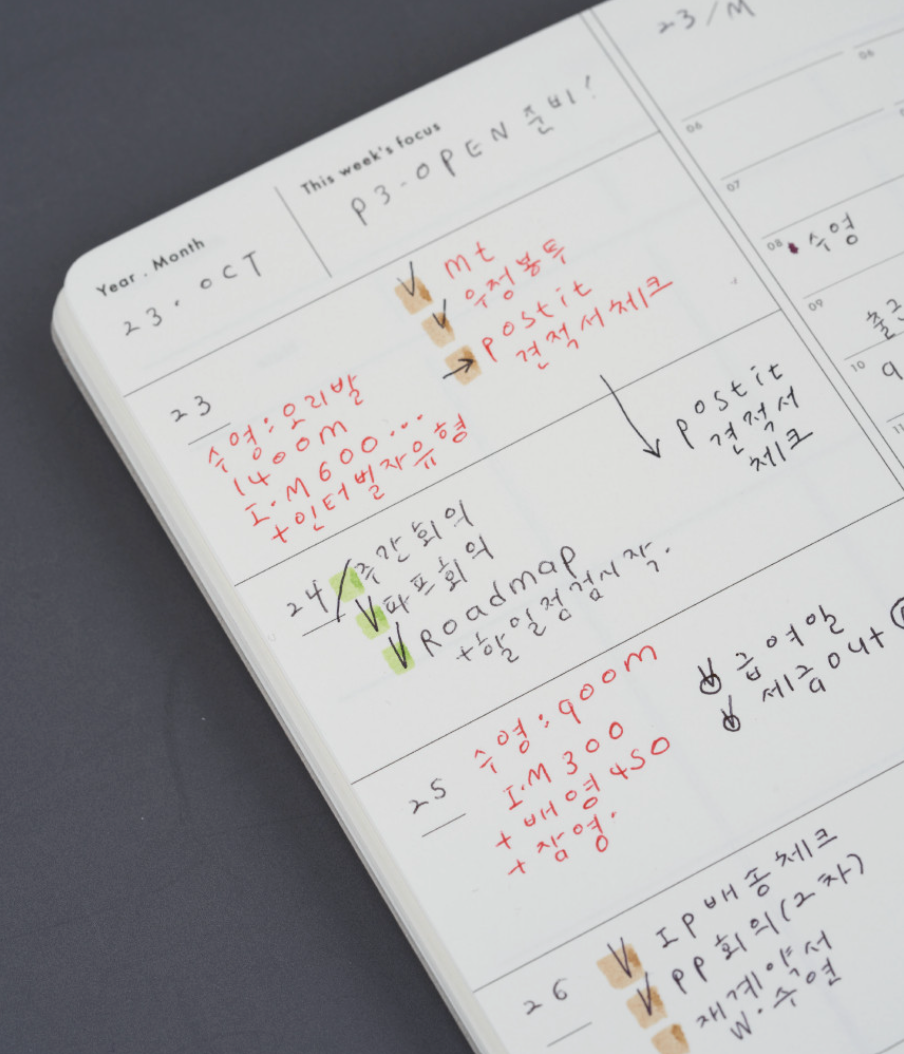 Year . Month
23. OCT
This week's focus
P3-OPEN 준비!
23
수영:오리발
1400m
I.M 600...
+인터벌자유형
mt
우정봉투
postit
견적서체크
postit
견적서
체크
24
주간회의
파프회의
Roadmap
+할일점검시작.
25
수영:900m
I.M 300
+ 배영 450
+ 잠영.
급여일
세금out
26
IP배송체크
PP회의(2차)
재계약서
W.수연
23/M
06
07
08 수영
09
출근
10 9
11
06